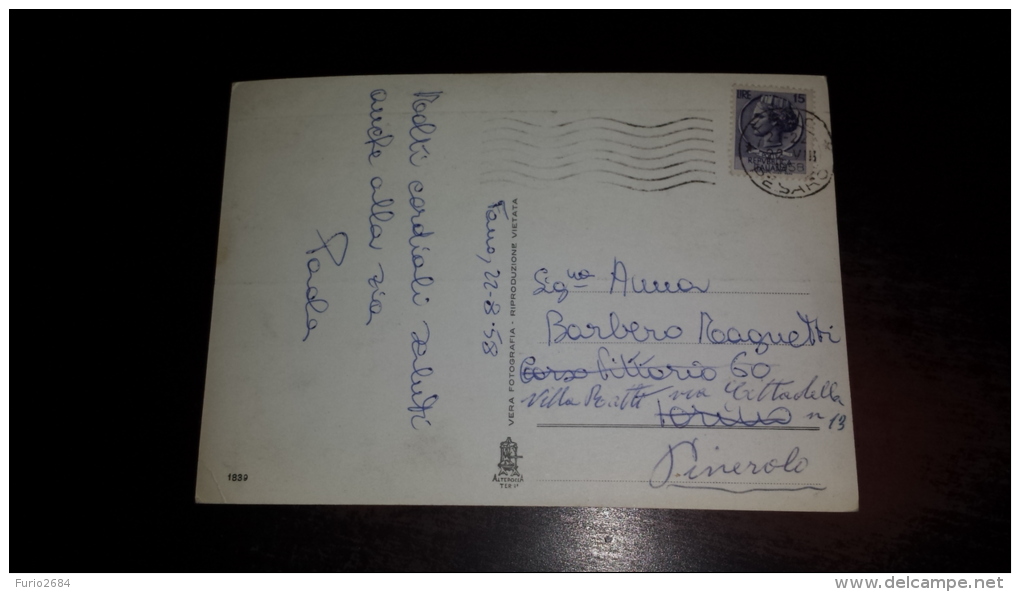 Molti cordiali saluti
anche alla zia
Paola
Fano, 22-8-58
VERA FOTOGRAFIA - RIPRODUZIONE VIETATA
ALTEROCCA
TERNI
1839
LIRE 15
REPUBBLICA
ITALIANA
VIII
1958
PESARO
Sig.na Anna
Barbero Magnetti
Corso Vittorio 60
Villa via Cittadella
Torino n 13
Pinerolo
Furio2684
www.delcampe.net